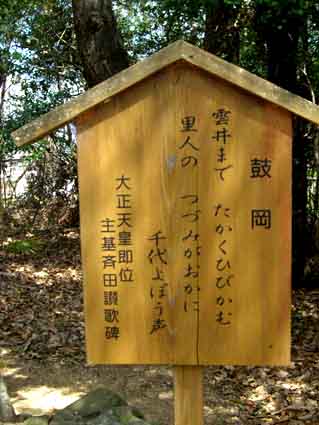 鼓岡
雲井まで たかくひびかむ
里人の つづみがおかに
千代よぼう声
大正天皇即位
主基斉田讃歌碑